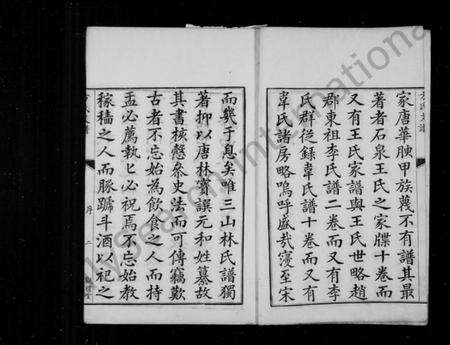 家唐華腴甲族蔑不有譜其最
著者石泉王氏之家牒十卷而
又有王氏家譜與王氏世略趙
郡東祖李氏譜二卷而又有李
氏群從錄韋氏譜十卷而又有
韋氏諸房略嗚呼盛哉寖至宋
而幾于息矣唯三山林氏譜獨
著抑以唐林寶譔元和姓纂故
其書核慤參史法而可傳竊歎
古者不忘始為飲食之人而持
盂必薦執匕必祝焉不忘始教
稼穡之人而豚蹄斗酒以祀之
序
二